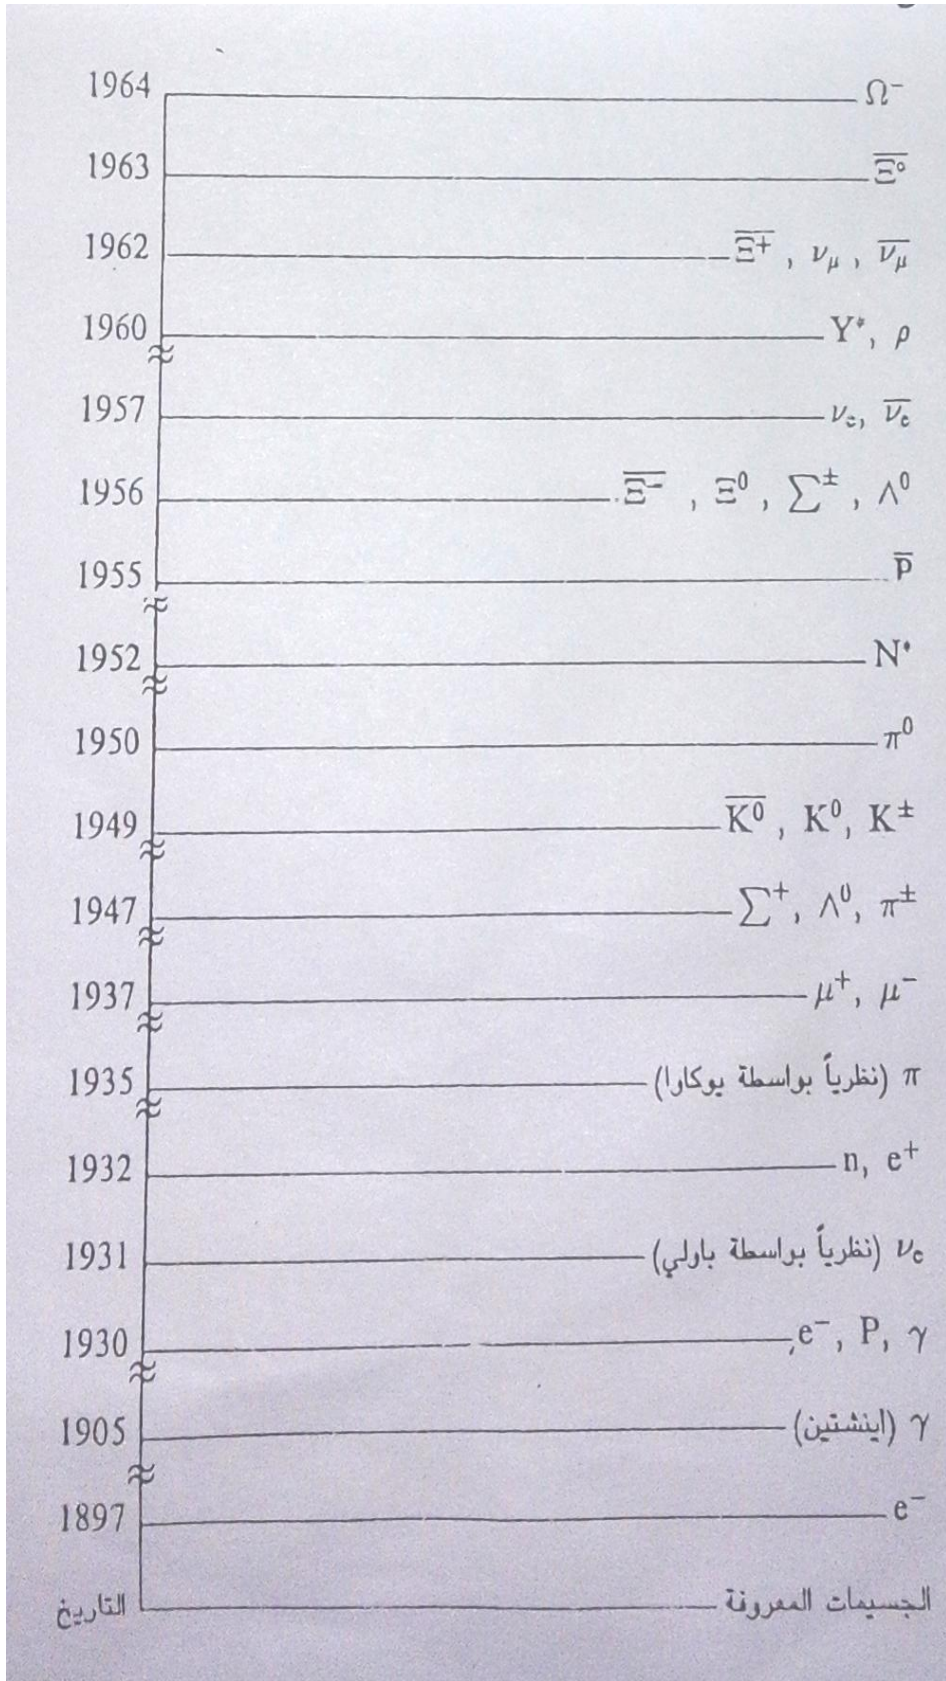 1964 Ω⁻
1963 Ξ̅°
1962 Ξ̅⁺ , ν_μ , ν̅_μ
1960 Y*, ρ
1957 ν_e, ν̅_e
1956 Ξ̅⁻ , Ξ⁰ , Σ^± , Λ⁰
1955 p̅
1952 N*
1950 π⁰
1949 K̅⁰ , K⁰, K^±
1947 Σ⁺, Λ⁰, π^±
1937 μ⁺, μ⁻
1935 π (نظرياً بواسطة يوكاوا)
1932 n, e⁺
1931 ν_e (نظرياً بواسطة باولي)
1930 e⁻, P, γ
1905 γ (اينشتين)
1897 e⁻
التاريخ الجسيمات المعروفة